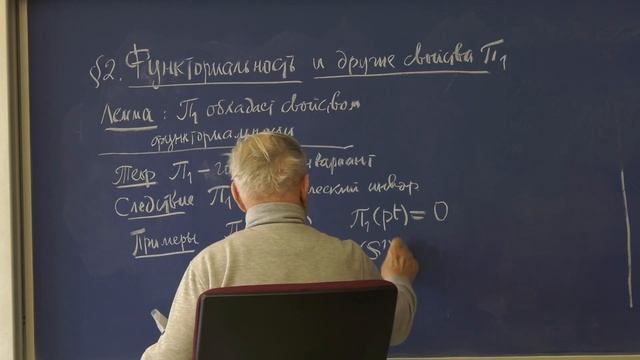 §2. Функториальность и другие свойства π₁
Лемма: π₁ обладает свойством
функториальности
Теор π₁ – инвариант
Следствие π₁
Примеры π₁(pt) = 0
(S¹